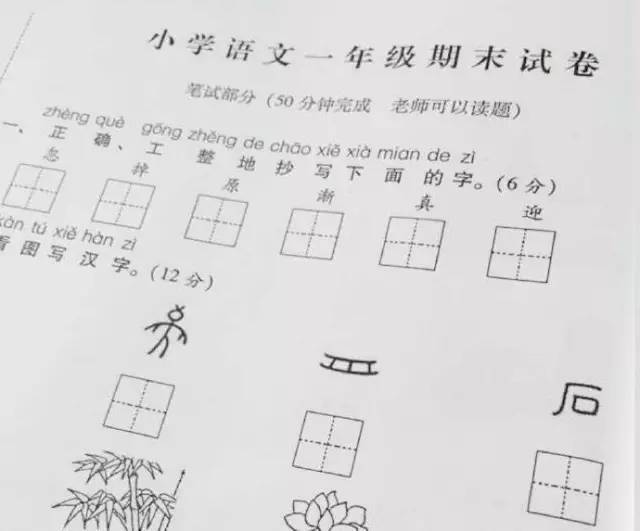 小学语文一年级期末试卷
笔试部分（50分钟完成 老师可以读题）
zhèng què gōng zhěng de chāo xiě xià mian de zì
一、正确、工整地抄写下面的字。(6分)
忽 辞 原 渐 真 迎
kàn tú xiě hàn zì
看图写汉字。(12分)